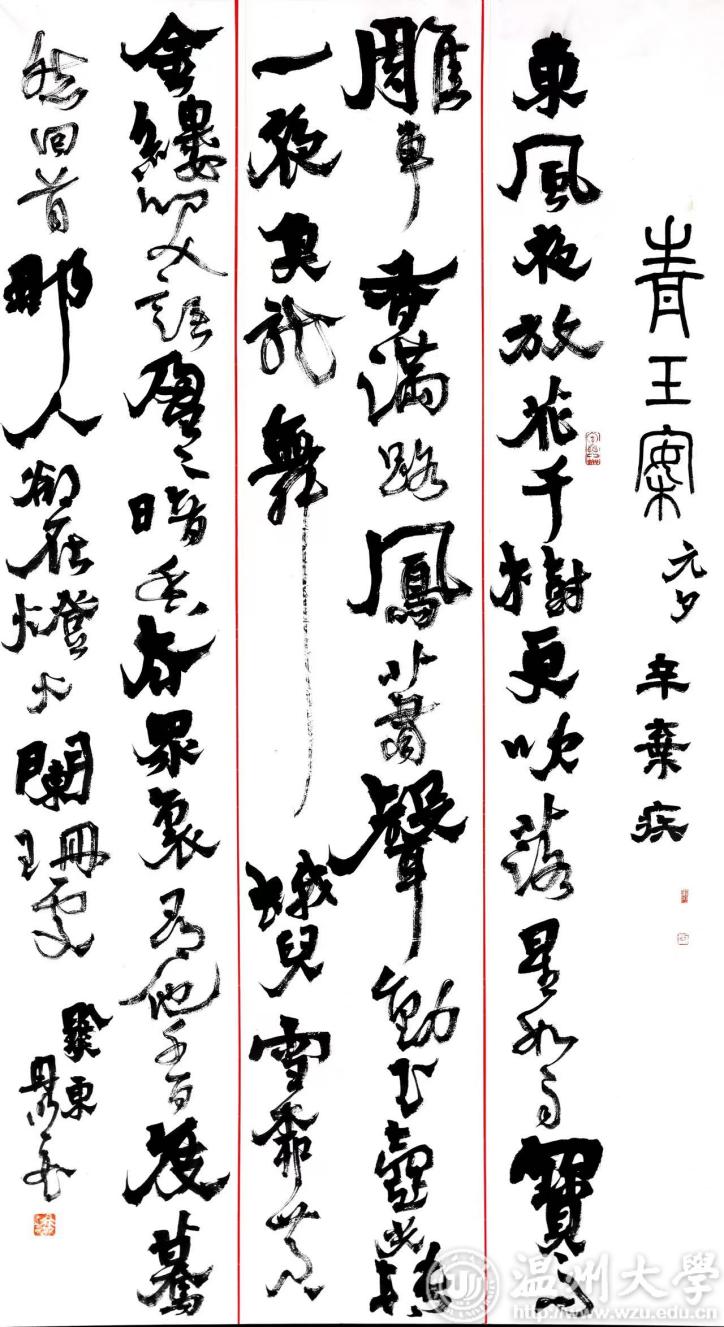 青玉案 元夕 辛棄疾
東風夜放花千樹更吹落星如雨寶馬
雕車香滿路鳳簫聲動玉壺光轉
一夜魚龍舞 蛾兒雪柳黃
金縷笑語盈々暗香去眾裏尋他千百度驀
然回首那人卻在燈火闌珊處
温州大學
http://www.wzu.edu.cn